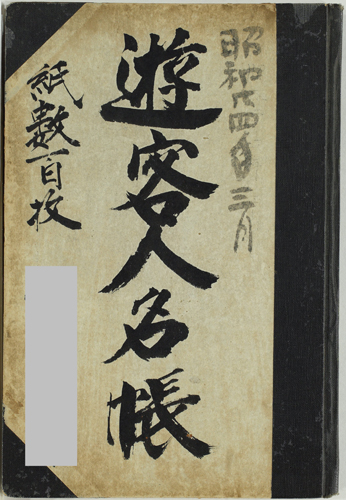 昭和十四年三月
遊客人名帳
紙數百枚